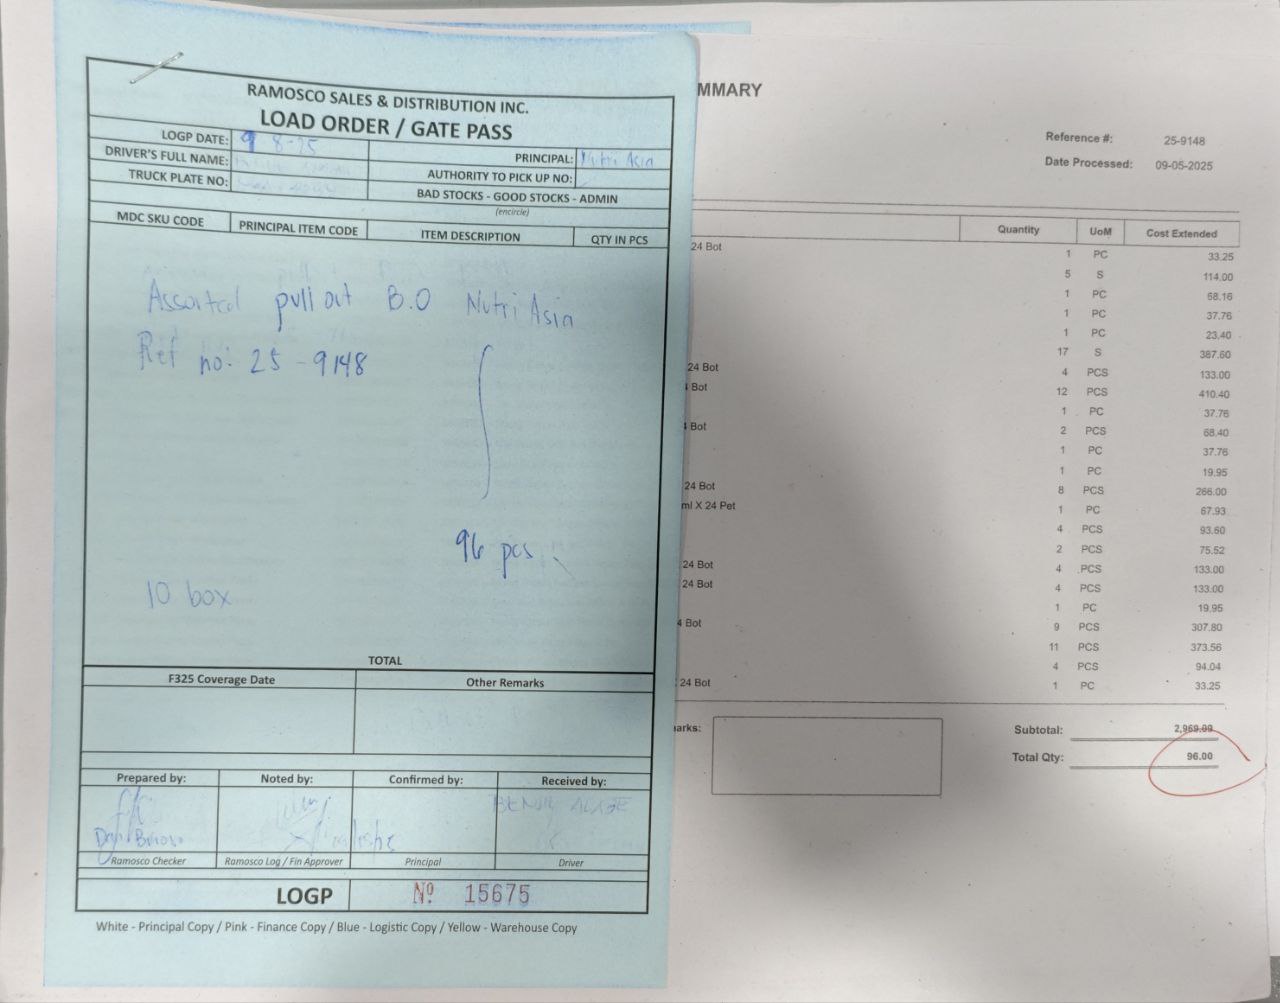 RAMOSCO SALES & DISTRIBUTION INC.
LOAD ORDER / GATE PASS
LOGP DATE: 9 8-25
DRIVER'S FULL NAME:
PRINCIPAL: Nutri Asia
TRUCK PLATE NO:
AUTHORITY TO PICK UP NO:
BAD STOCKS - GOOD STOCKS - ADMIN
(encircle)
MDC SKU CODE PRINCIPAL ITEM CODE ITEM DESCRIPTION QTY IN PCS
Assorted pull out B.O Nutri Asia
Ref no: 25-9148
96 pcs
10 box
TOTAL
F325 Coverage Date Other Remarks
Prepared by: Noted by: Confirmed by: Received by:
Ramosco Checker Ramosco Log / Fin Approver Principal Driver
LOGP Nº 15675
White - Principal Copy / Pink - Finance Copy / Blue - Logistic Copy / Yellow - Warehouse Copy
MMARY
Reference #: 25-9148
Date Processed: 09-05-2025
Quantity UoM Cost Extended
24 Bot
1 PC 33.25
5 S 114.00
1 PC 68.16
1 PC 37.76
1 PC 23.40
17 S 387.60
24 Bot 4 PCS 133.00
Bot 12 PCS 410.40
1 PC 37.76
Bot 2 PCS 68.40
1 PC 37.76
1 PC 19.95
24 Bot 8 PCS 266.00
ml X 24 Pet 1 PC 67.93
4 PCS 93.60
2 PCS 75.52
24 Bot 4 PCS 133.00
24 Bot 4 PCS 133.00
1 PC 19.95
4 Bot 9 PCS 307.80
11 PCS 373.56
4 PCS 94.04
24 Bot 1 PC 33.25
arks:
Subtotal: 2,969.09
Total Qty: 96.00